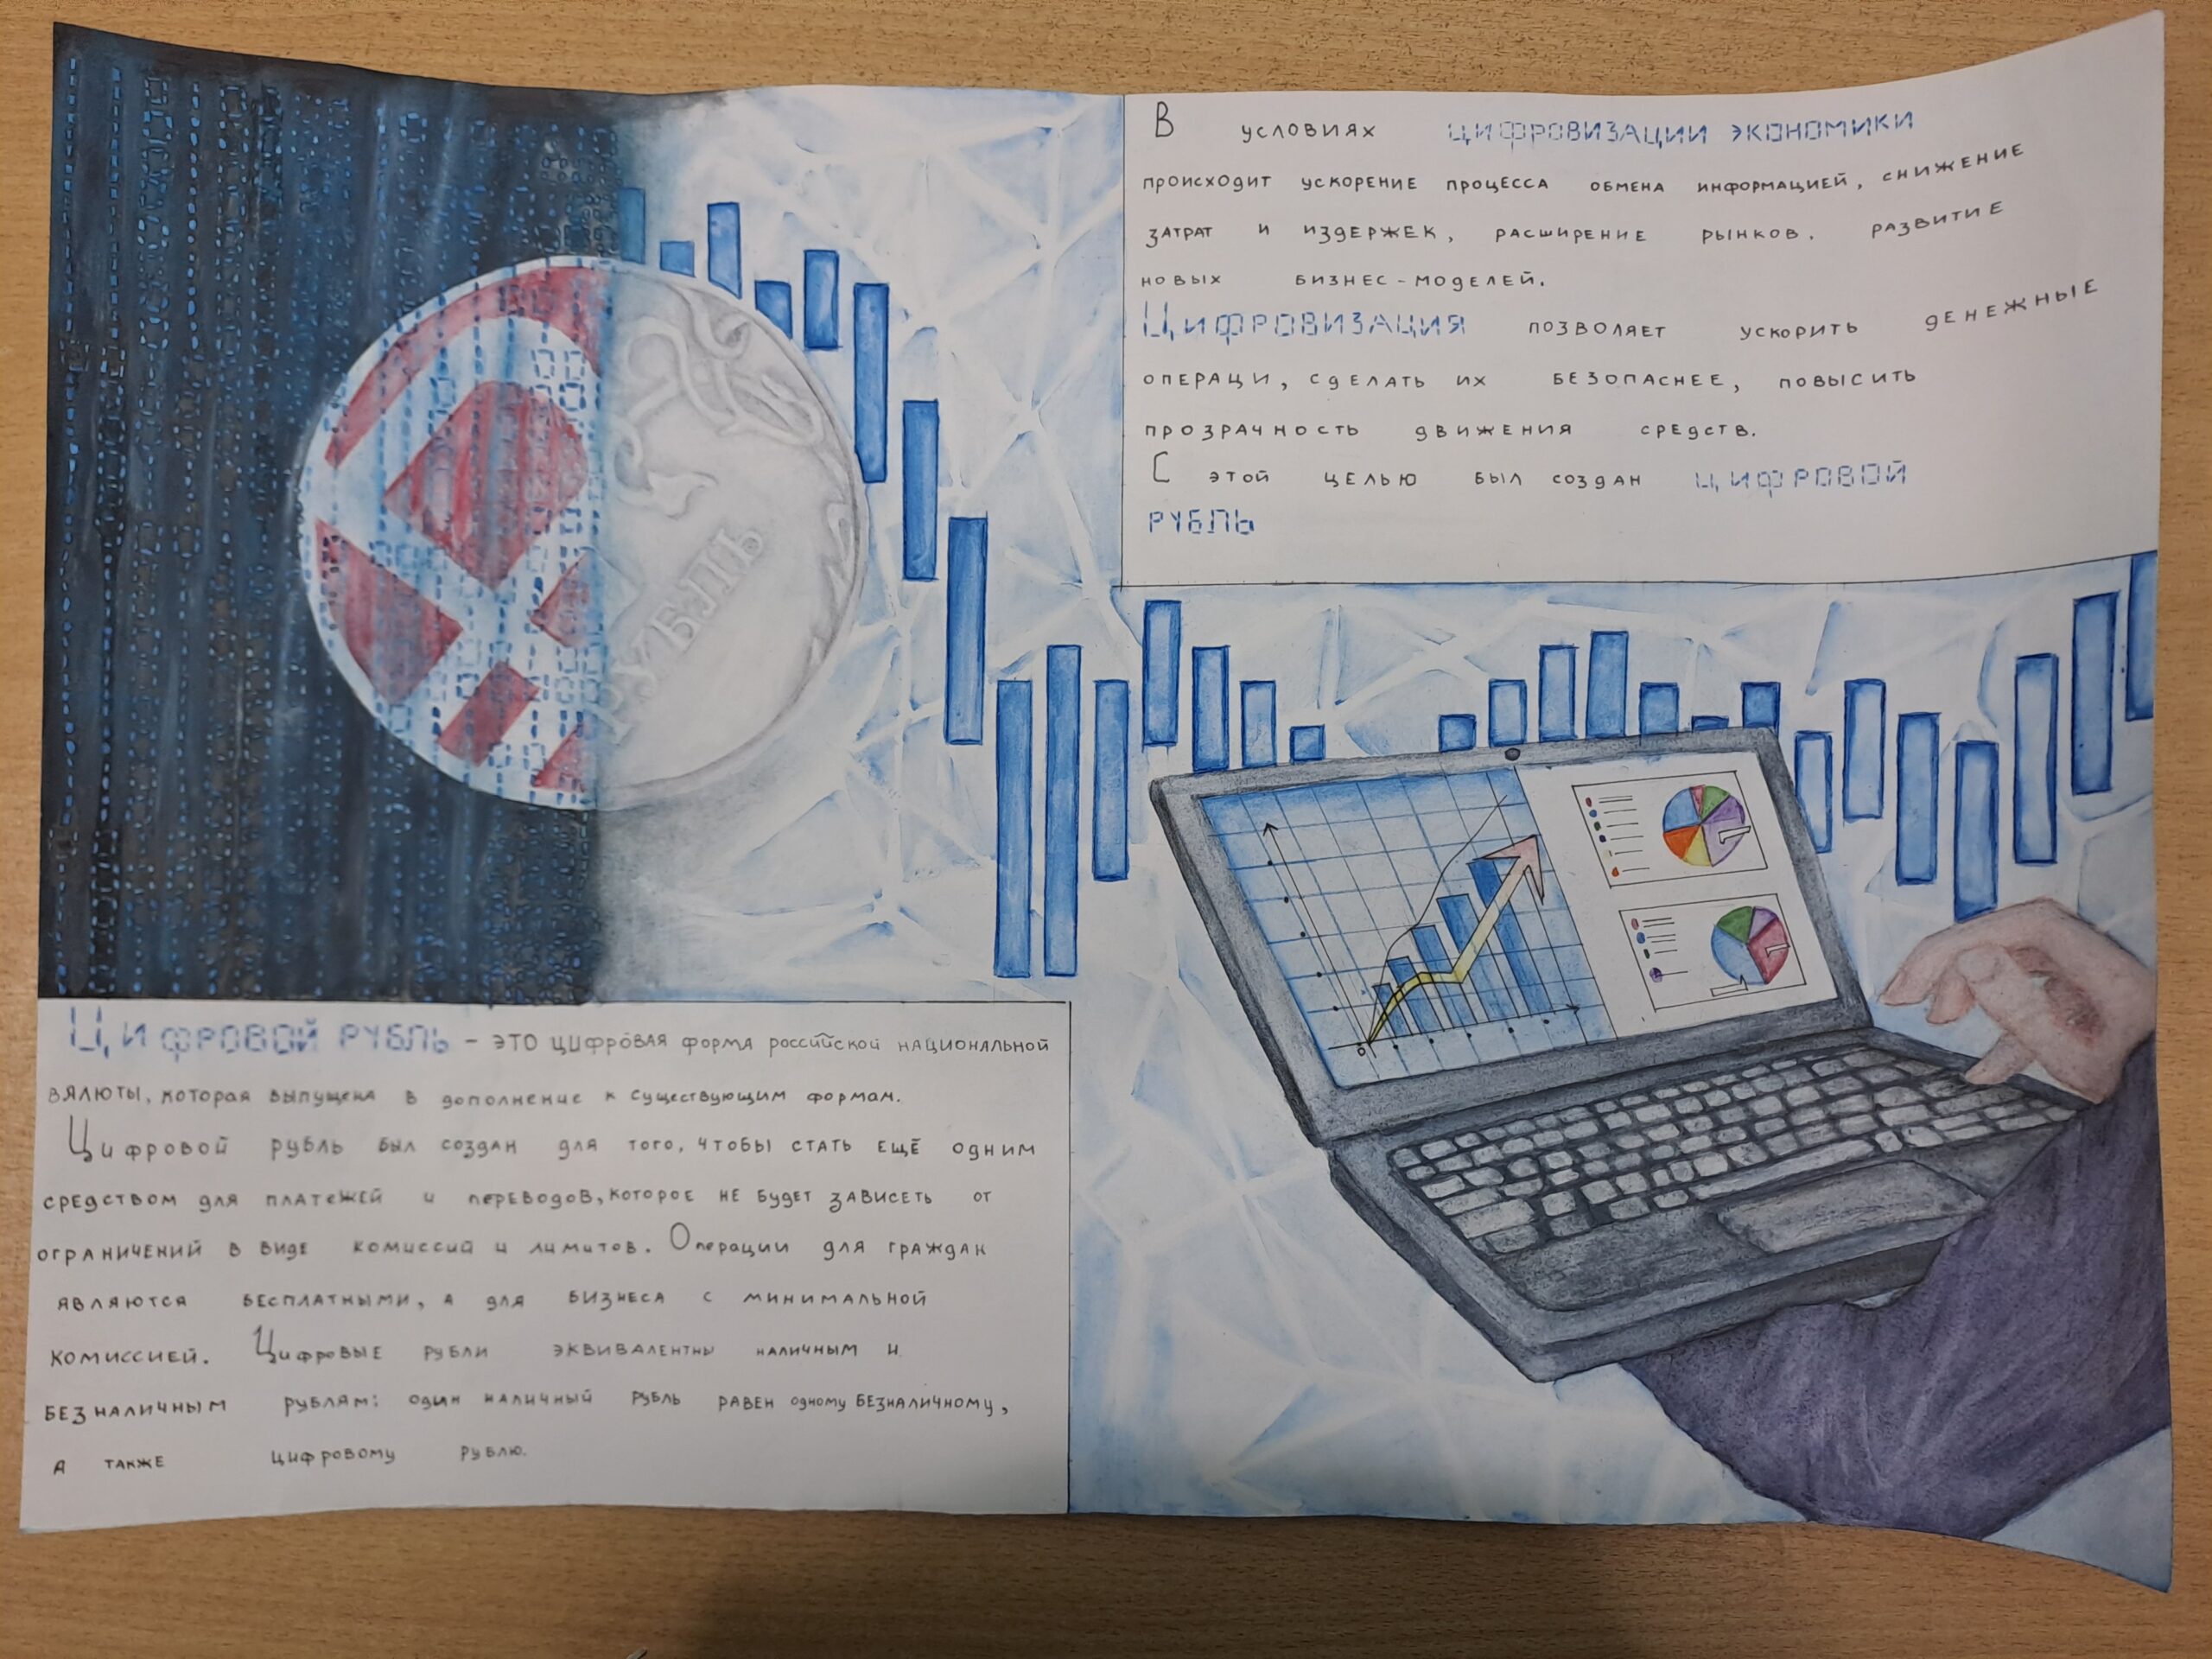 В условиях ЦИФРОВИЗАЦИИ ЭКОНОМИКИ
происходит ускорение процесса обмена информацией, снижение
затрат и издержек, расширение рынков. развитие
новых бизнес-моделей.
ЦИФРОВИЗАЦИЯ позволяет ускорить денежные
операци, сделать их безопаснее, повысить
прозрачность движения средств.
С этой целью был создан ЦИФРОВОЙ
РУБЛЬ
РУБЛЬ
ЦИФРОВОЙ РУБЛЬ - это цифровая форма российской национальной
вялюты, которая выпущена в дополнение к существующим формам.
Цифровой рубль был создан для того, чтобы стать ещё одним
средством для платежей и переводов, которое не будет зависеть от
ограничений в виде комиссий и лимитов. Операции для граждан
являются бесплатными, а для бизнеса с минимальной
комиссией. Цифровые рубли эквивалентны наличным и
безналичным рублям: один наличный рубль равен одному безналичному,
а также цифровому рублю.